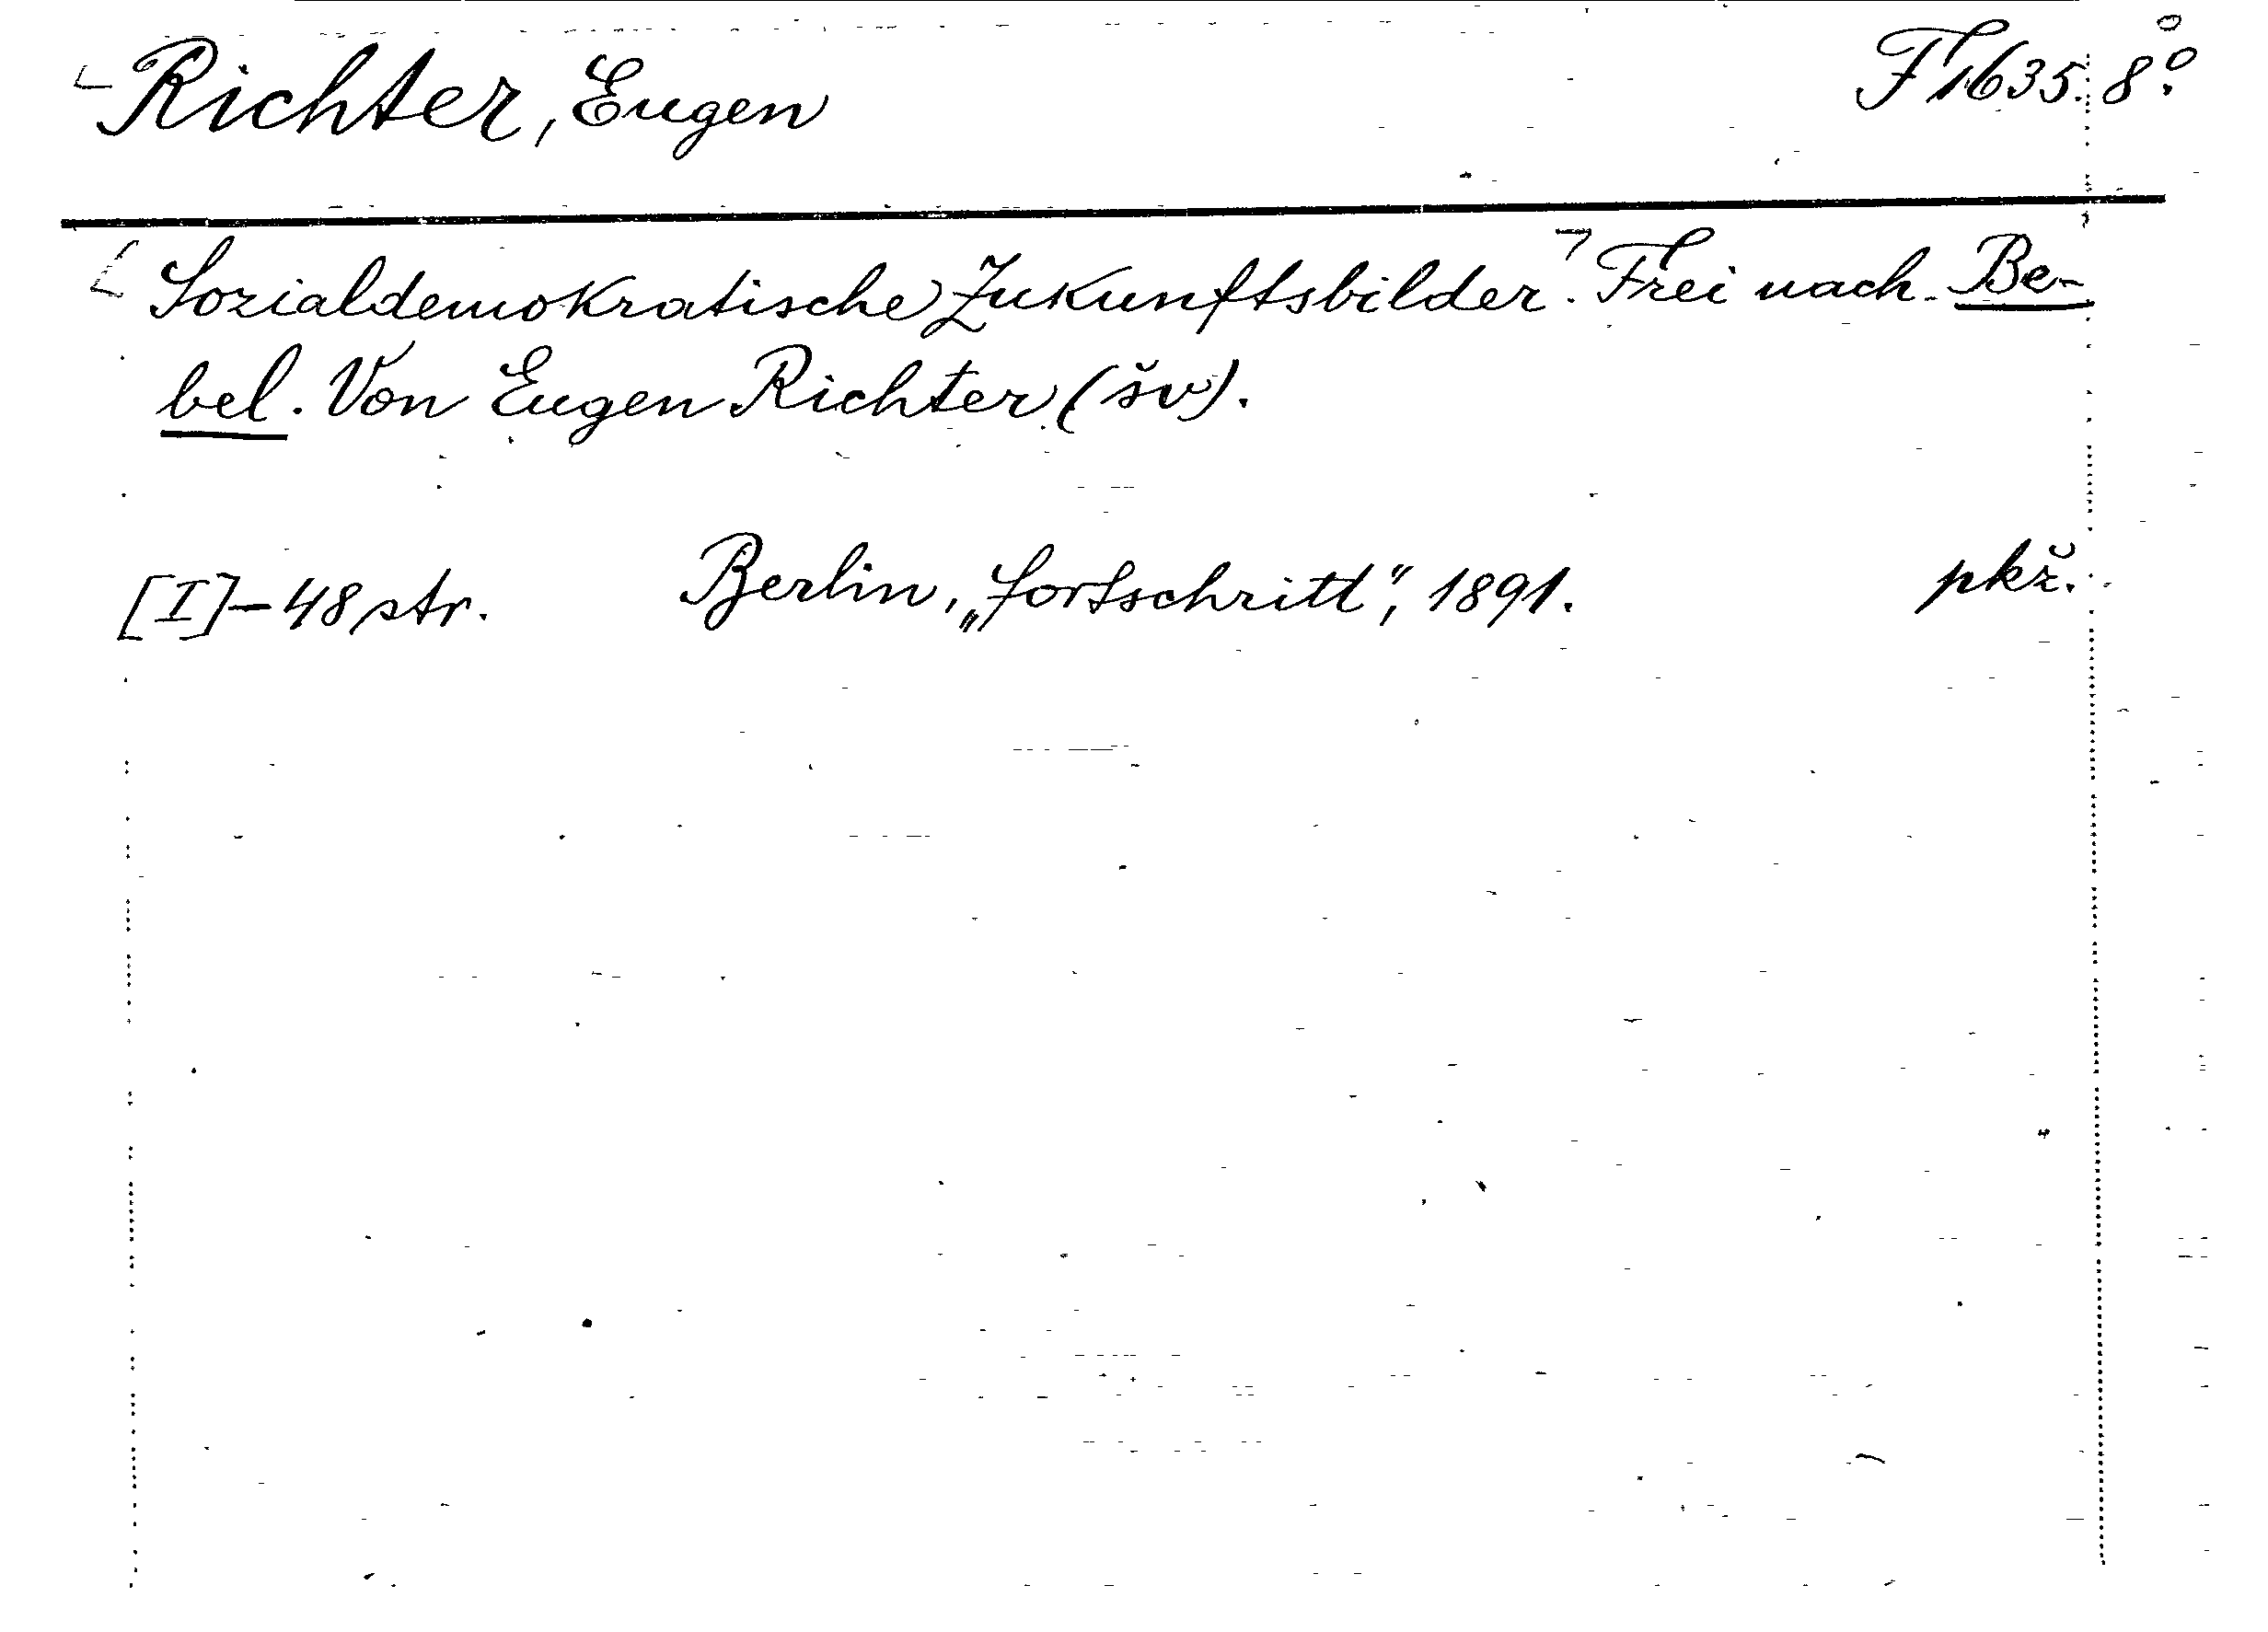 Richter, Eugen F 1635. 8°.
Sozialdemokratische Zukunftsbilder. Frei nach Be-
bel. Von Eugen Richter (šv).
[I]-48 str. Berlin, „Fortschritt", 1891. pkž.